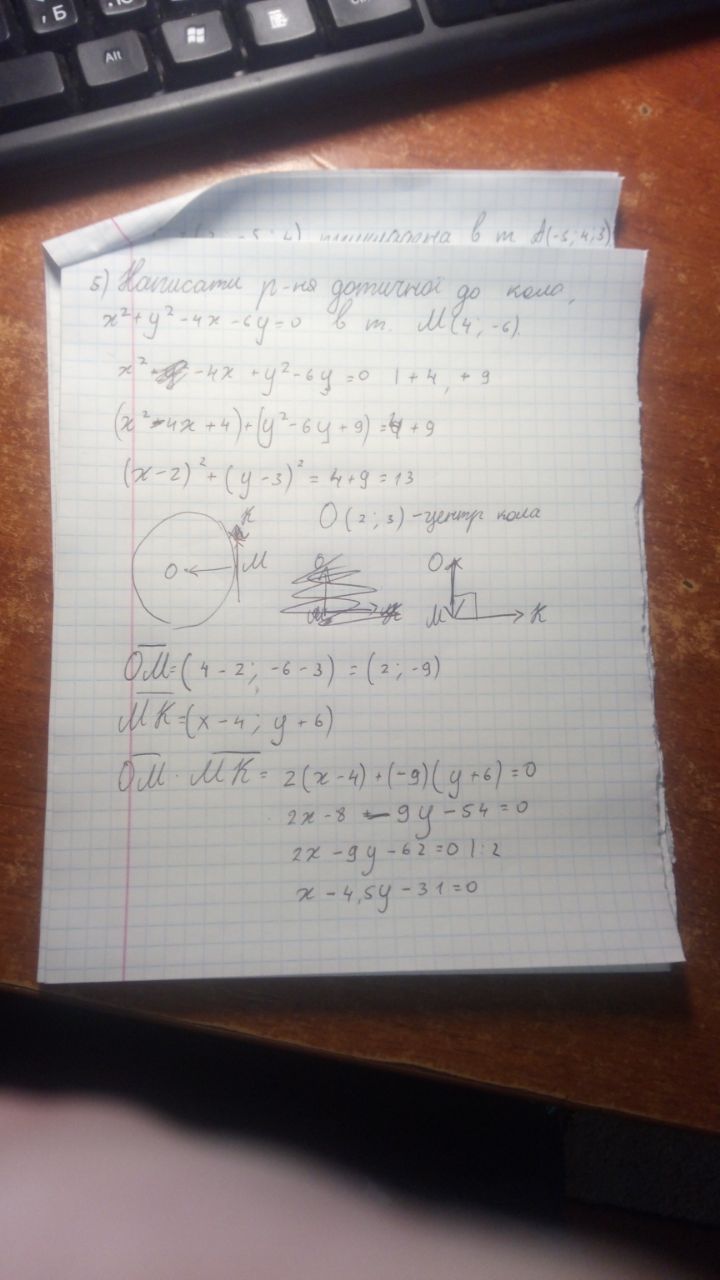 , Б
Alt
-5; 4) в т. A(-3; 4; 3)
5) Написати р-ня дотичної до кола,
x² + y² - 4x - 6y = 0 в т. M(4; -6).
x² - 4x + y² - 6y = 0 | + 4, + 9
(x² - 4x + 4) + (y² - 6y + 9) = 4 + 9
(x - 2)² + (y - 3)² = 4 + 9 = 13
K O(2; 3) - центр кола
O M O
M K
OM = (4 - 2; -6 - 3) = (2; -9)
MK = (x - 4; y + 6)
OM · MK = 2(x - 4) + (-9)(y + 6) = 0
2x - 8 - 9y - 54 = 0
2x - 9y - 62 = 0 | : 2
x - 4,5y - 31 = 0